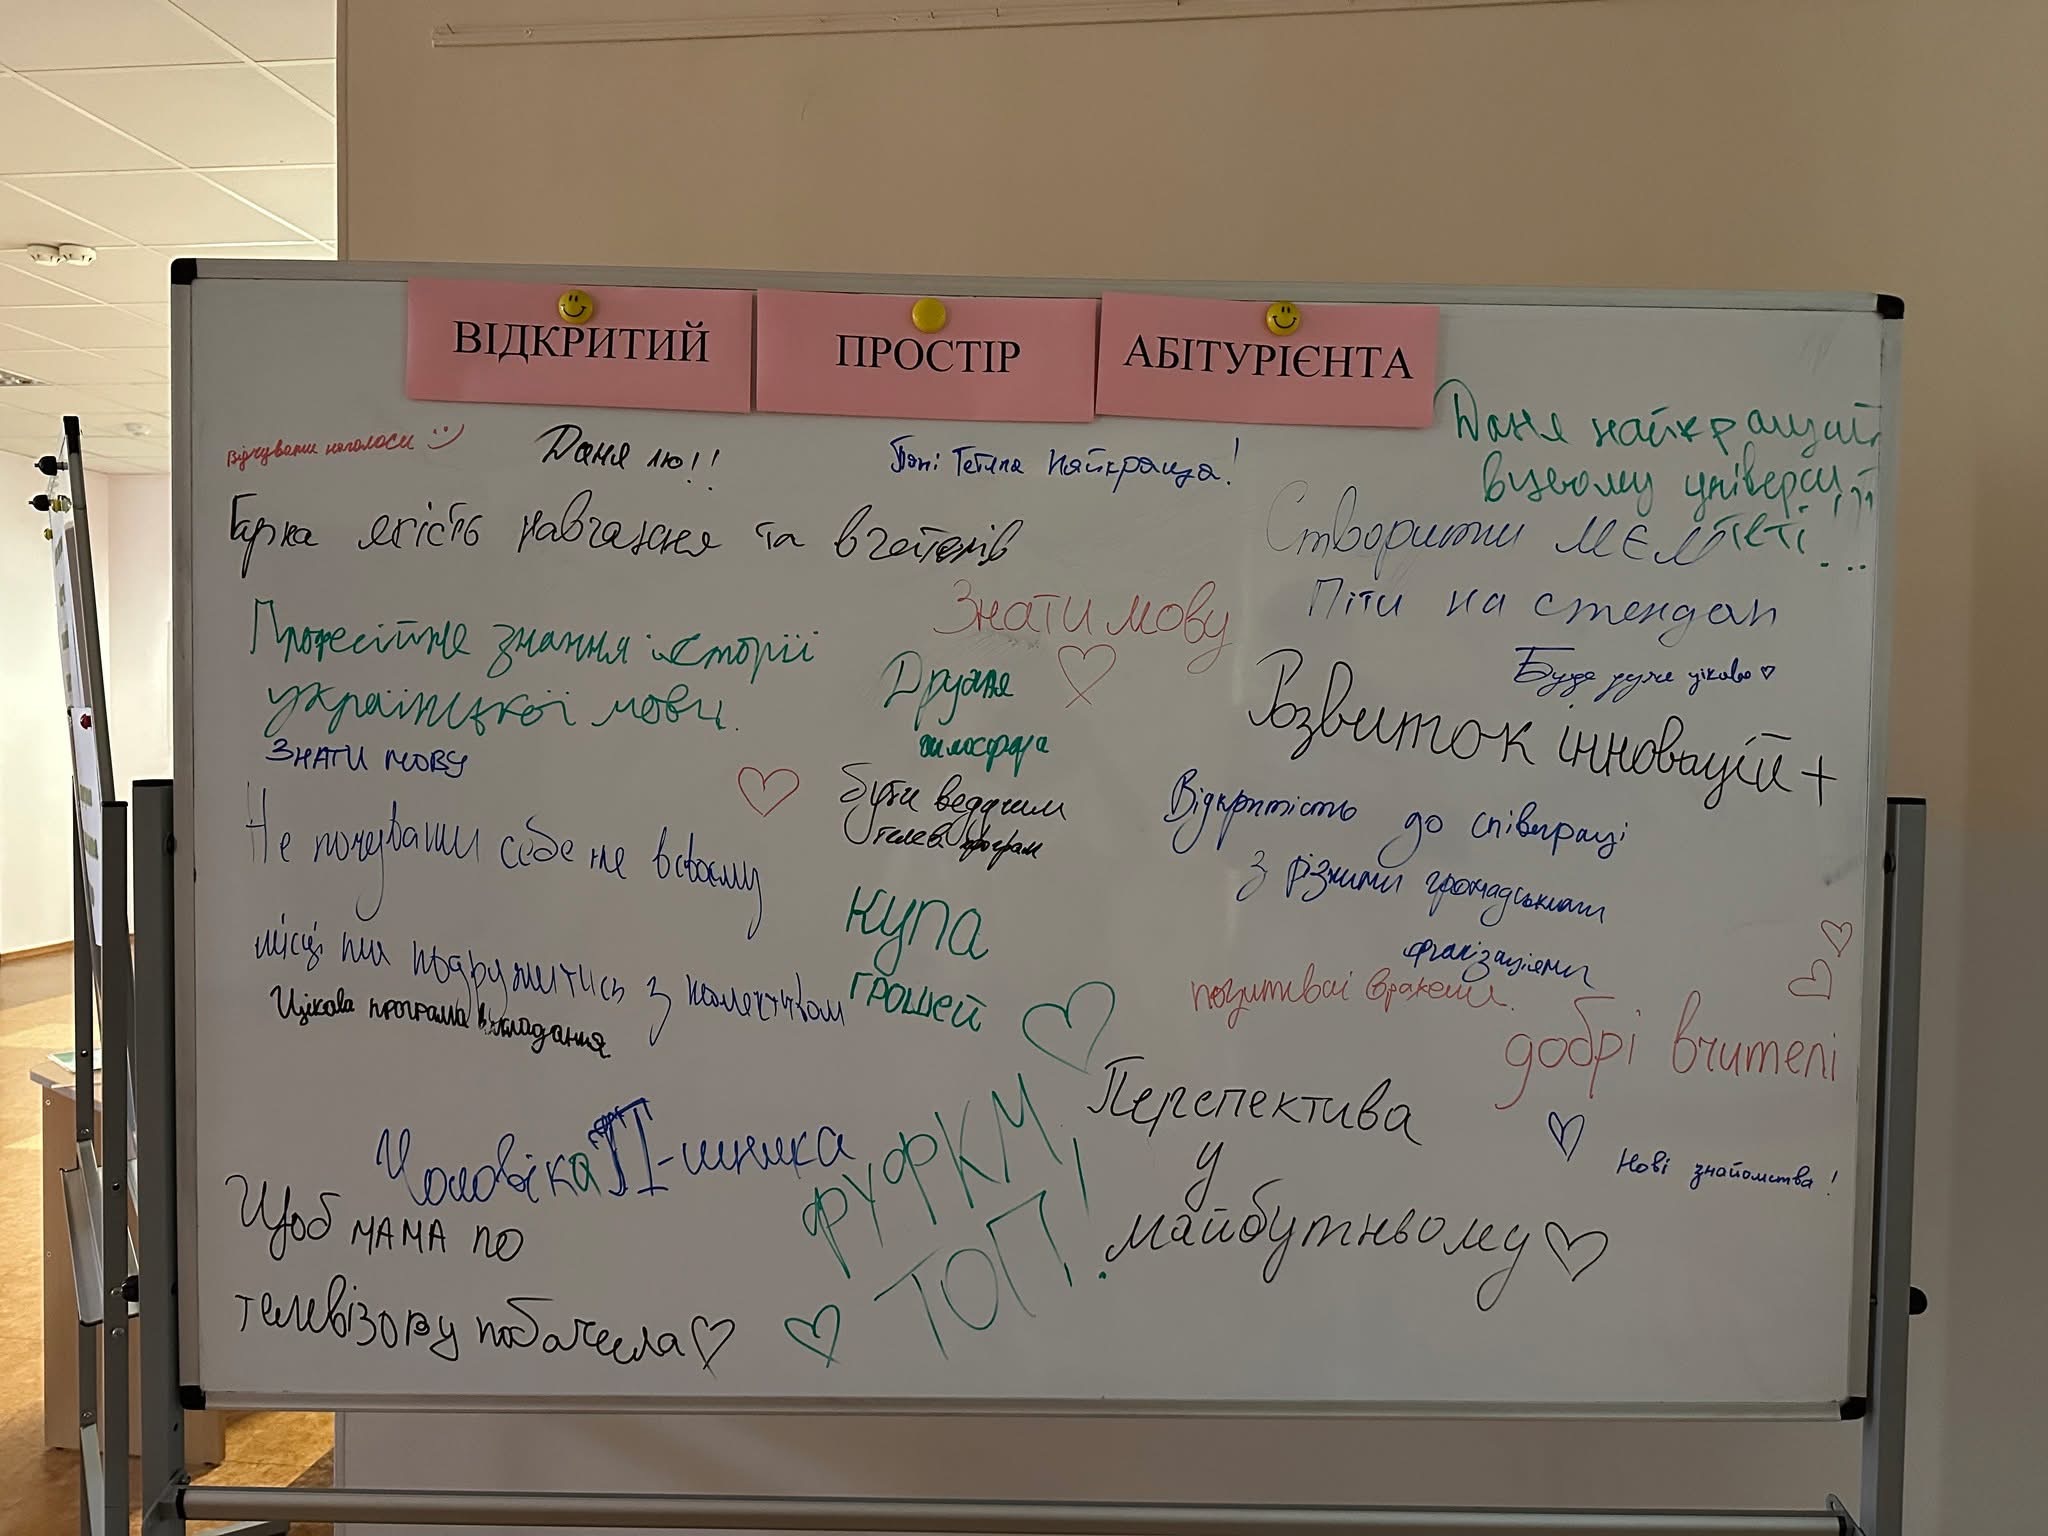 ВІДКРИТИЙ ПРОСТІР АБІТУРІЄНТА
Відчувати наголоси
Даня лю!!
Пані Тетяна Найкраща!
Даня найкращий
вцьому універси
теті!...
Гарна якість навчання та вчителів
Створити мєм
Піти на стендап
Професійне знання історії
української мови.
Знати мову
Дружня
атмосфера
Буде дуже цікаво
Розвиток інновацій +
ЗНАТИ МОВУ
Бути ведучим
телевпрограм
Відкритість до співпраці
з різними громадськими
організаціями
Не почувати себе не всвоєму
місці та подружитись з колективом
Цікава програма викладання
КУПА
ГРОШЕЙ
позитивні враження.
добрі вчителі
Чоловіка ІТ-шника
ФУФКМ
ТОП!
Перспектива
у
майбутньому
Нові знайомства!
Щоб МАМА по
телевізору побачила